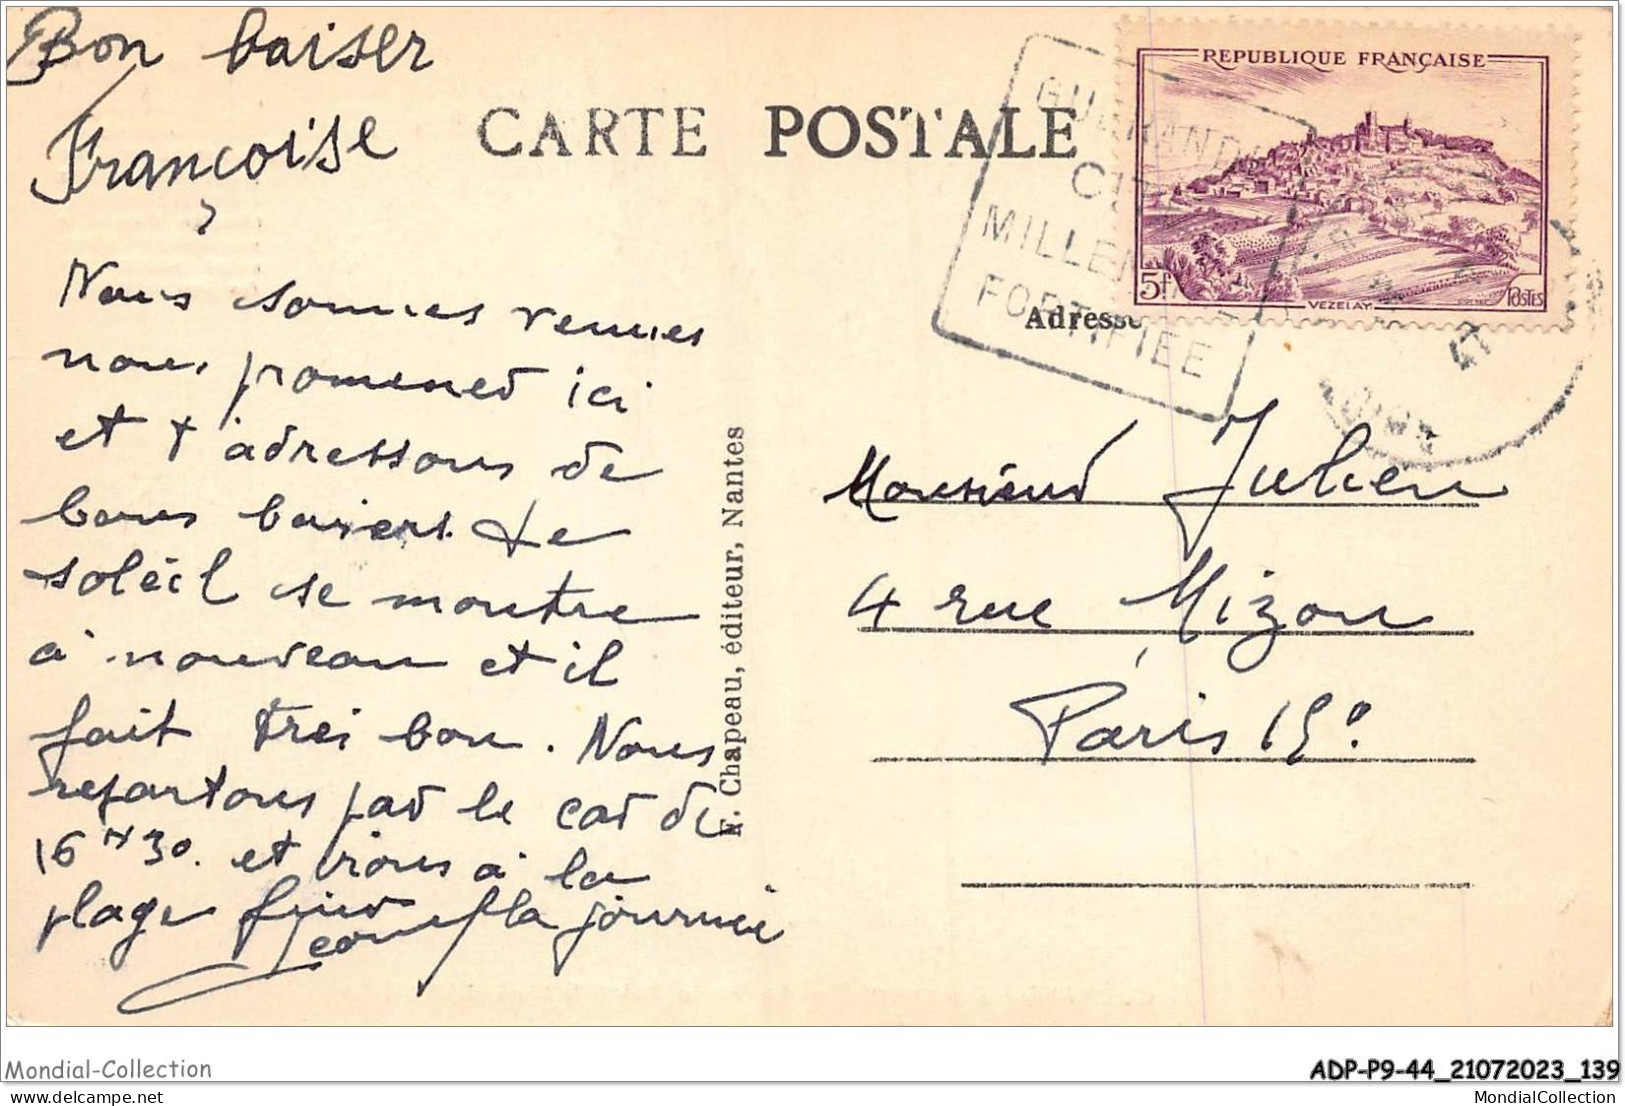 Bon baiser
Françoise
CARTE POSTALE
REPUBLIQUE FRANÇAISE
5f
VEZELAY
POSTES
GUERANDE
CITE
MILLEN
FORTIFIEE
Adresse
47
Nous sommes venues
nous promener ici
et t'adressons de
bons baisers. Le
soleil se montre
à nouveau et il
fait très bon. Nous
repartons par le car de
16 H 30. et irons à la
plage finir la journée
F. Chapeau, éditeur, Nantes
Monsieur Julien
4 rue Mizon
Paris 15e.
Mondial-Collection
ADP-P9-44_21072023_139
www.delcampe.net
MondialCollection